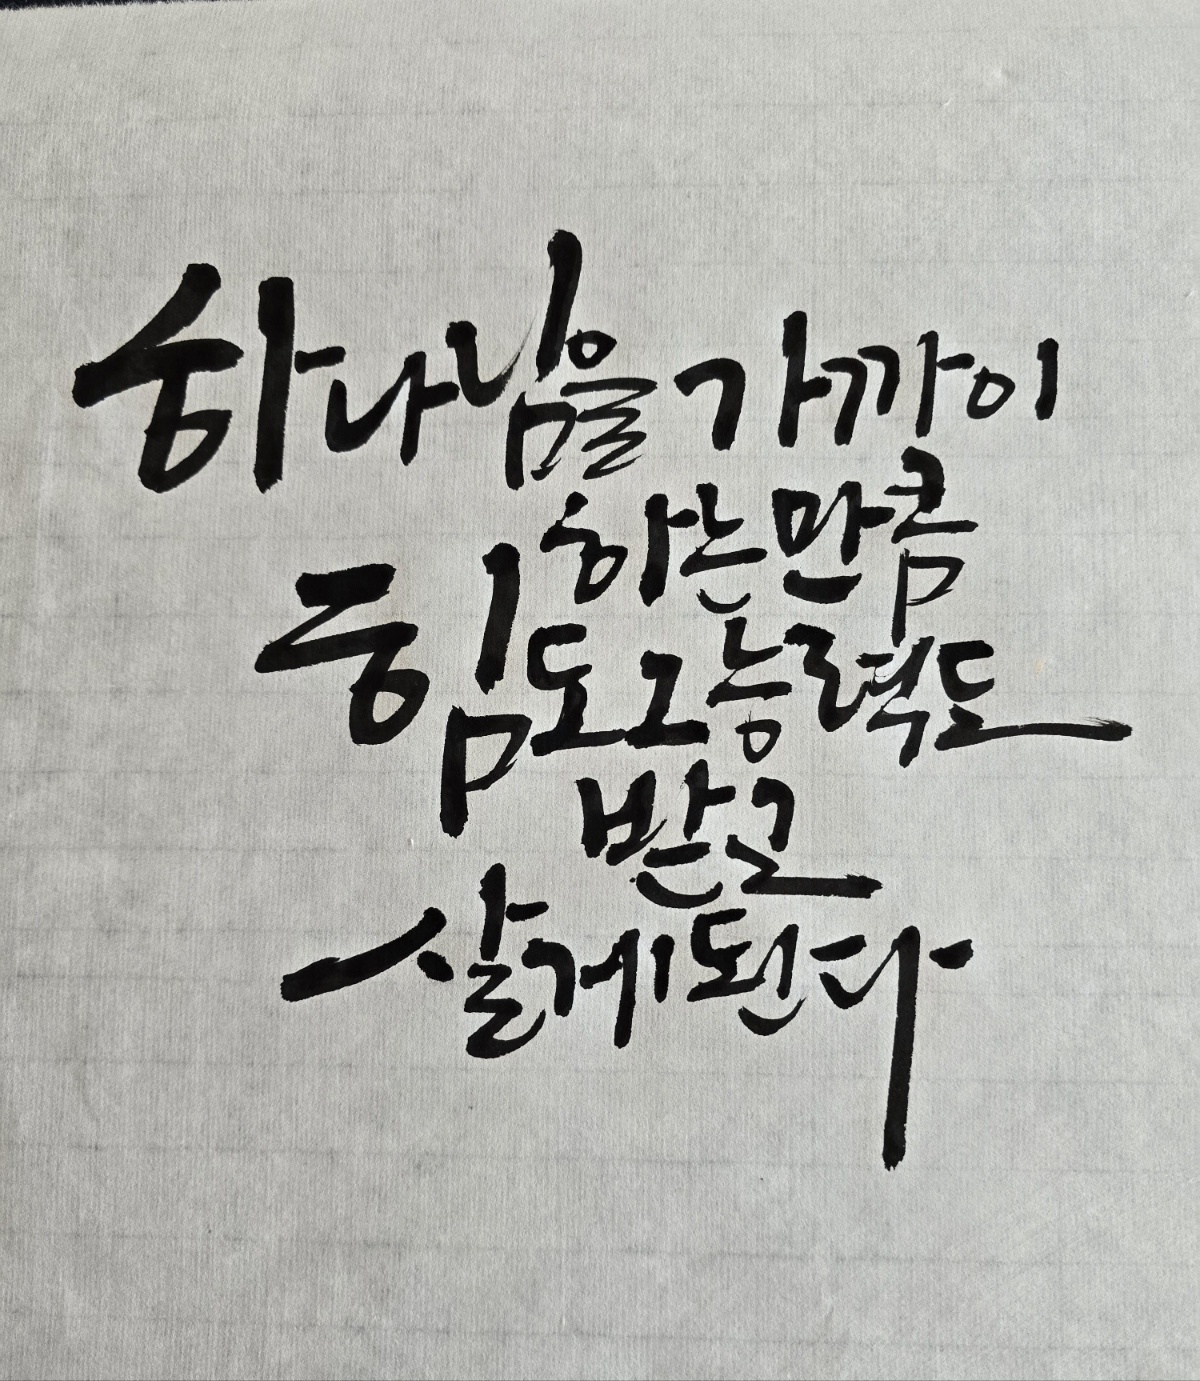 하나님을 가까이
하는만큼
힘도 그 능력도
받고
살게된다